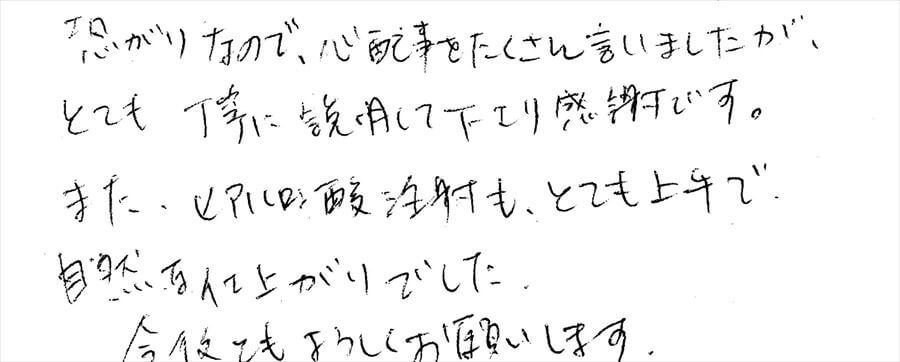 恐がりなので、心配事をたくさん言いましたが、
とても丁寧に説明して下さり感謝です。
また、ヒアルロン酸注射も、とても上手で
自然な仕上がりでした。
今後ともよろしくお願いします。